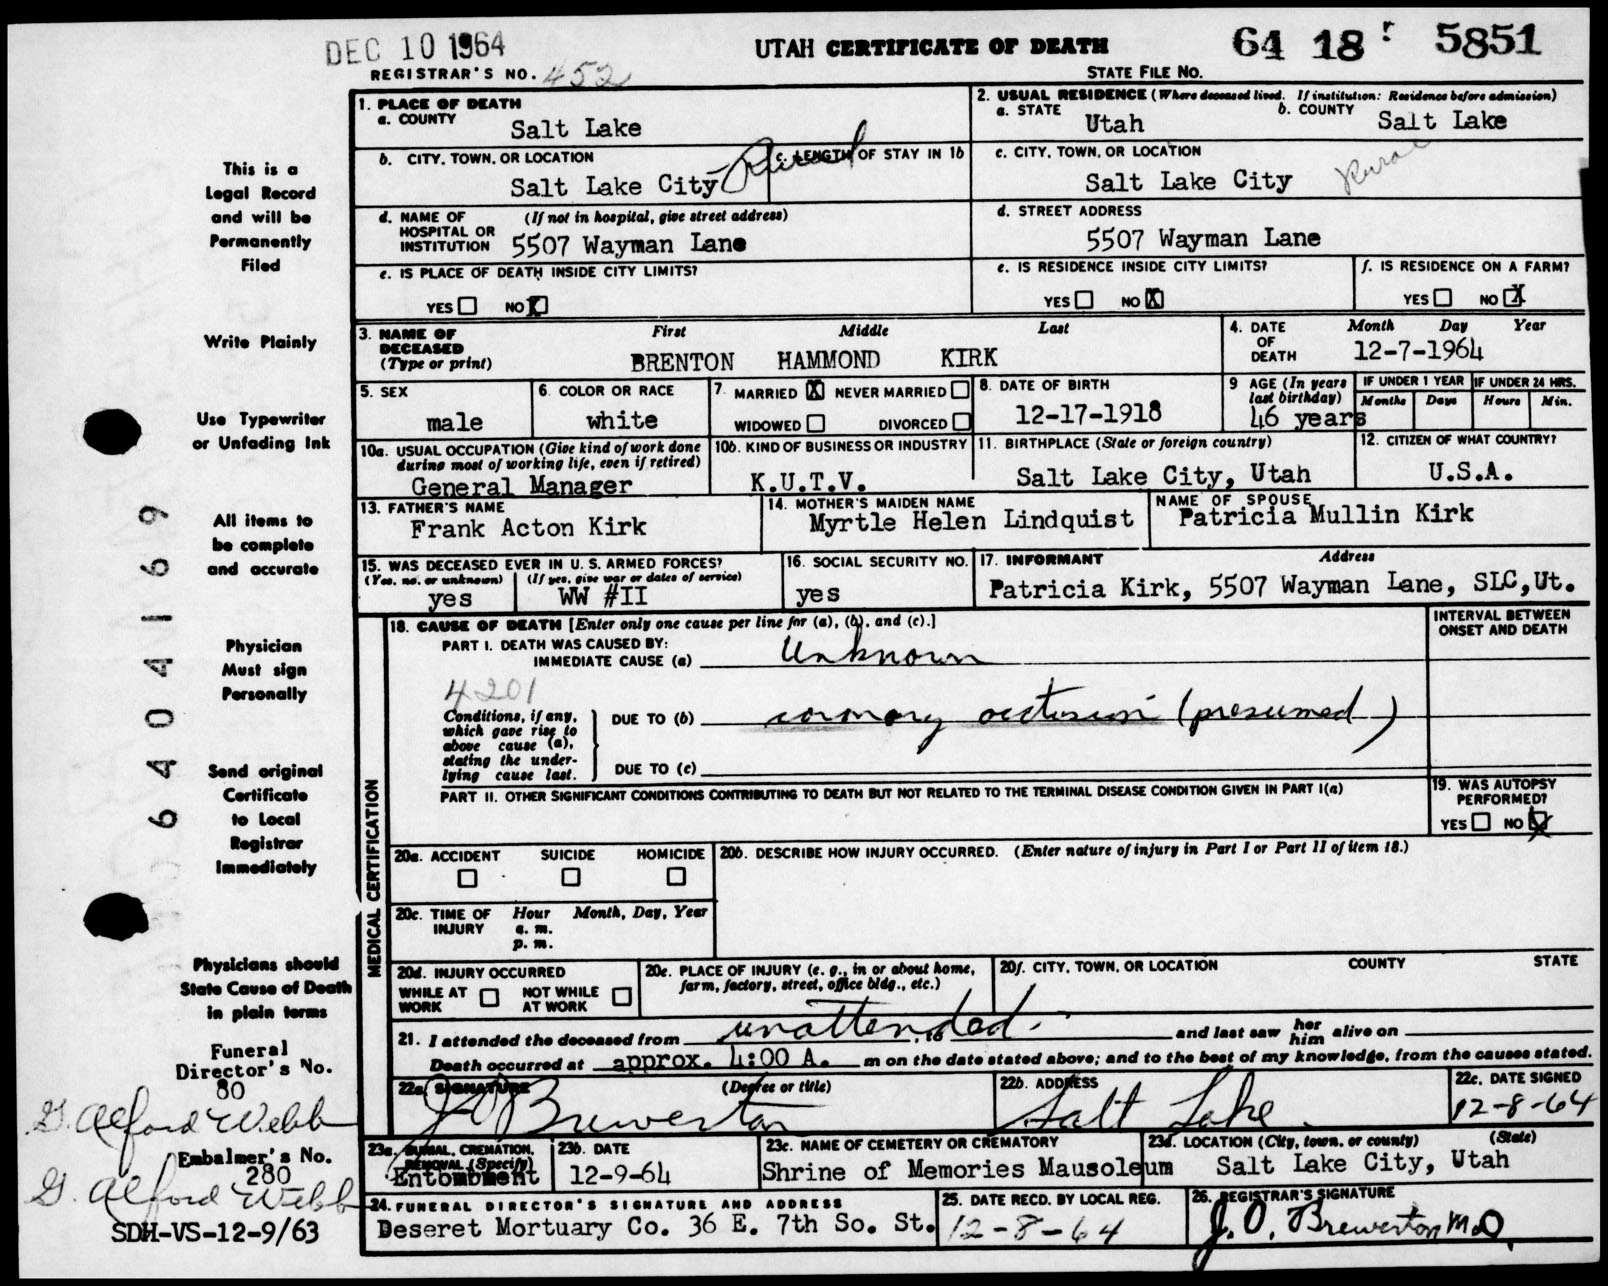 DEC 10 1964
UTAH CERTIFICATE OF DEATH
64 18 5851
REGISTRAR'S NO. 452
STATE FILE NO.
This is a
Legal Record
and will be
Permanently
Filed
Write Plainly
Use Typewriter
or Unfading Ink
All items to
be complete
and accurate
Physician
Must sign
Personally
Send original
Certificate
to Local
Registrar
Immediately
Physicians should
State Cause of Death
in plain terms
Funeral
Director's No.
80
G. Alford Webb
Embalmer's No.
280
G. Alford Webb
SDH-VS-12-9/63
6404169
1. PLACE OF DEATH
a. COUNTY
Salt Lake
2. USUAL RESIDENCE (Where deceased lived. If institution: Residence before admission)
a. STATE
Utah
b. COUNTY
Salt Lake
b. CITY, TOWN, OR LOCATION
Salt Lake City Rural
c. LENGTH OF STAY IN 1b
c. CITY, TOWN, OR LOCATION
Salt Lake City Rural
d. NAME OF HOSPITAL OR INSTITUTION
(If not in hospital, give street address)
5507 Wayman Lane
d. STREET ADDRESS
5507 Wayman Lane
e. IS PLACE OF DEATH INSIDE CITY LIMITS?
YES NO X
e. IS RESIDENCE INSIDE CITY LIMITS?
YES NO X
f. IS RESIDENCE ON A FARM?
YES NO X
3. NAME OF DECEASED (Type or print)
First Middle Last
BRENTON HAMMOND KIRK
4. DATE OF DEATH
Month Day Year
12-7-1964
5. SEX
male
6. COLOR OR RACE
white
7. MARRIED X NEVER MARRIED
WIDOWED DIVORCED
8. DATE OF BIRTH
12-17-1918
9 AGE (In years last birthday)
46 years
IF UNDER 1 YEAR
Months Days
IF UNDER 24 HRS.
Hours Min.
10a. USUAL OCCUPATION (Give kind of work done during most of working life, even if retired)
General Manager
10b. KIND OF BUSINESS OR INDUSTRY
K.U.T.V.
11. BIRTHPLACE (State or foreign country)
Salt Lake City, Utah
12. CITIZEN OF WHAT COUNTRY?
U.S.A.
13. FATHER'S NAME
Frank Acton Kirk
14. MOTHER'S MAIDEN NAME
Myrtle Helen Lindquist
NAME OF SPOUSE
Patricia Mullin Kirk
15. WAS DECEASED EVER IN U. S. ARMED FORCES?
(Yes, no, or unknown) (If yes, give war or dates of service)
yes WW #II
16. SOCIAL SECURITY NO.
yes
17. INFORMANT Address
Patricia Kirk, 5507 Wayman Lane, SLC,Ut.
MEDICAL CERTIFICATION
18. CAUSE OF DEATH [Enter only one cause per line for (a), (b), and (c).]
INTERVAL BETWEEN ONSET AND DEATH
PART I. DEATH WAS CAUSED BY:
IMMEDIATE CAUSE (a) Unknown
4201
Conditions, if any, which gave rise to above cause (a), stating the underlying cause last.
DUE TO (b) coronary occlusion (presumed)
DUE TO (c)
PART II. OTHER SIGNIFICANT CONDITIONS CONTRIBUTING TO DEATH BUT NOT RELATED TO THE TERMINAL DISEASE CONDITION GIVEN IN PART I(a)
19. WAS AUTOPSY PERFORMED?
YES NO X
20a. ACCIDENT SUICIDE HOMICIDE
20b. DESCRIBE HOW INJURY OCCURRED. (Enter nature of injury in Part I or Part II of item 18.)
20c. TIME OF INJURY Hour Month, Day, Year
a. m.
p. m.
20d. INJURY OCCURRED
WHILE AT WORK NOT WHILE AT WORK
20e. PLACE OF INJURY (e. g., in or about home, farm, factory, street, office bldg., etc.)
20f. CITY, TOWN, OR LOCATION COUNTY STATE
21. I attended the deceased from unattended. to and last saw her him alive on
Death occurred at approx. 4:00 A. m on the date stated above; and to the best of my knowledge, from the causes stated.
22a. SIGNATURE (Degree or title)
J O Brewerton
22b. ADDRESS
Salt Lake
22c. DATE SIGNED
12-8-64
23a. BURIAL, CREMATION, REMOVAL (Specify)
Entombment
23b. DATE
12-9-64
23c. NAME OF CEMETERY OR CREMATORY
Shrine of Memories Mausoleum
23d. LOCATION (City, town, or county) (State)
Salt Lake City, Utah
24. FUNERAL DIRECTOR'S SIGNATURE AND ADDRESS
Deseret Mortuary Co. 36 E. 7th So. St.
25. DATE RECD. BY LOCAL REG.
12-8-64
26. REGISTRAR'S SIGNATURE
J. O. Brewerton M.D.